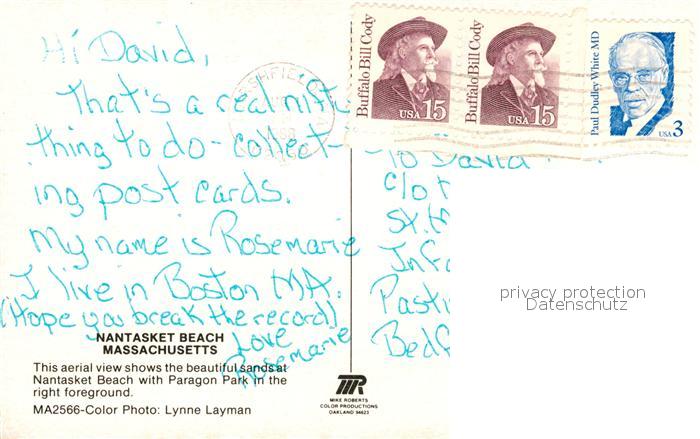 Hi David,
That's a real nift
thing to do - collect-
ing post cards.
My name is Rosemarie
I live in Boston MA.
(Hope you break the record)
Love
Rosemarie
NANTASKET BEACH
MASSACHUSETTS
This aerial view shows the beautiful sands at
Nantasket Beach with Paragon Park in the
right foreground.
MA2566-Color Photo: Lynne Layman
MIKE ROBERTS
COLOR PRODUCTIONS
OAKLAND 94623
Buffalo Bill Cody
USA 15
Buffalo Bill Cody
USA 15
Paul Dudley White MD
USA 3
To David
c/o
St.
Inf
Past
Bedf
privacy protection
Datenschutz